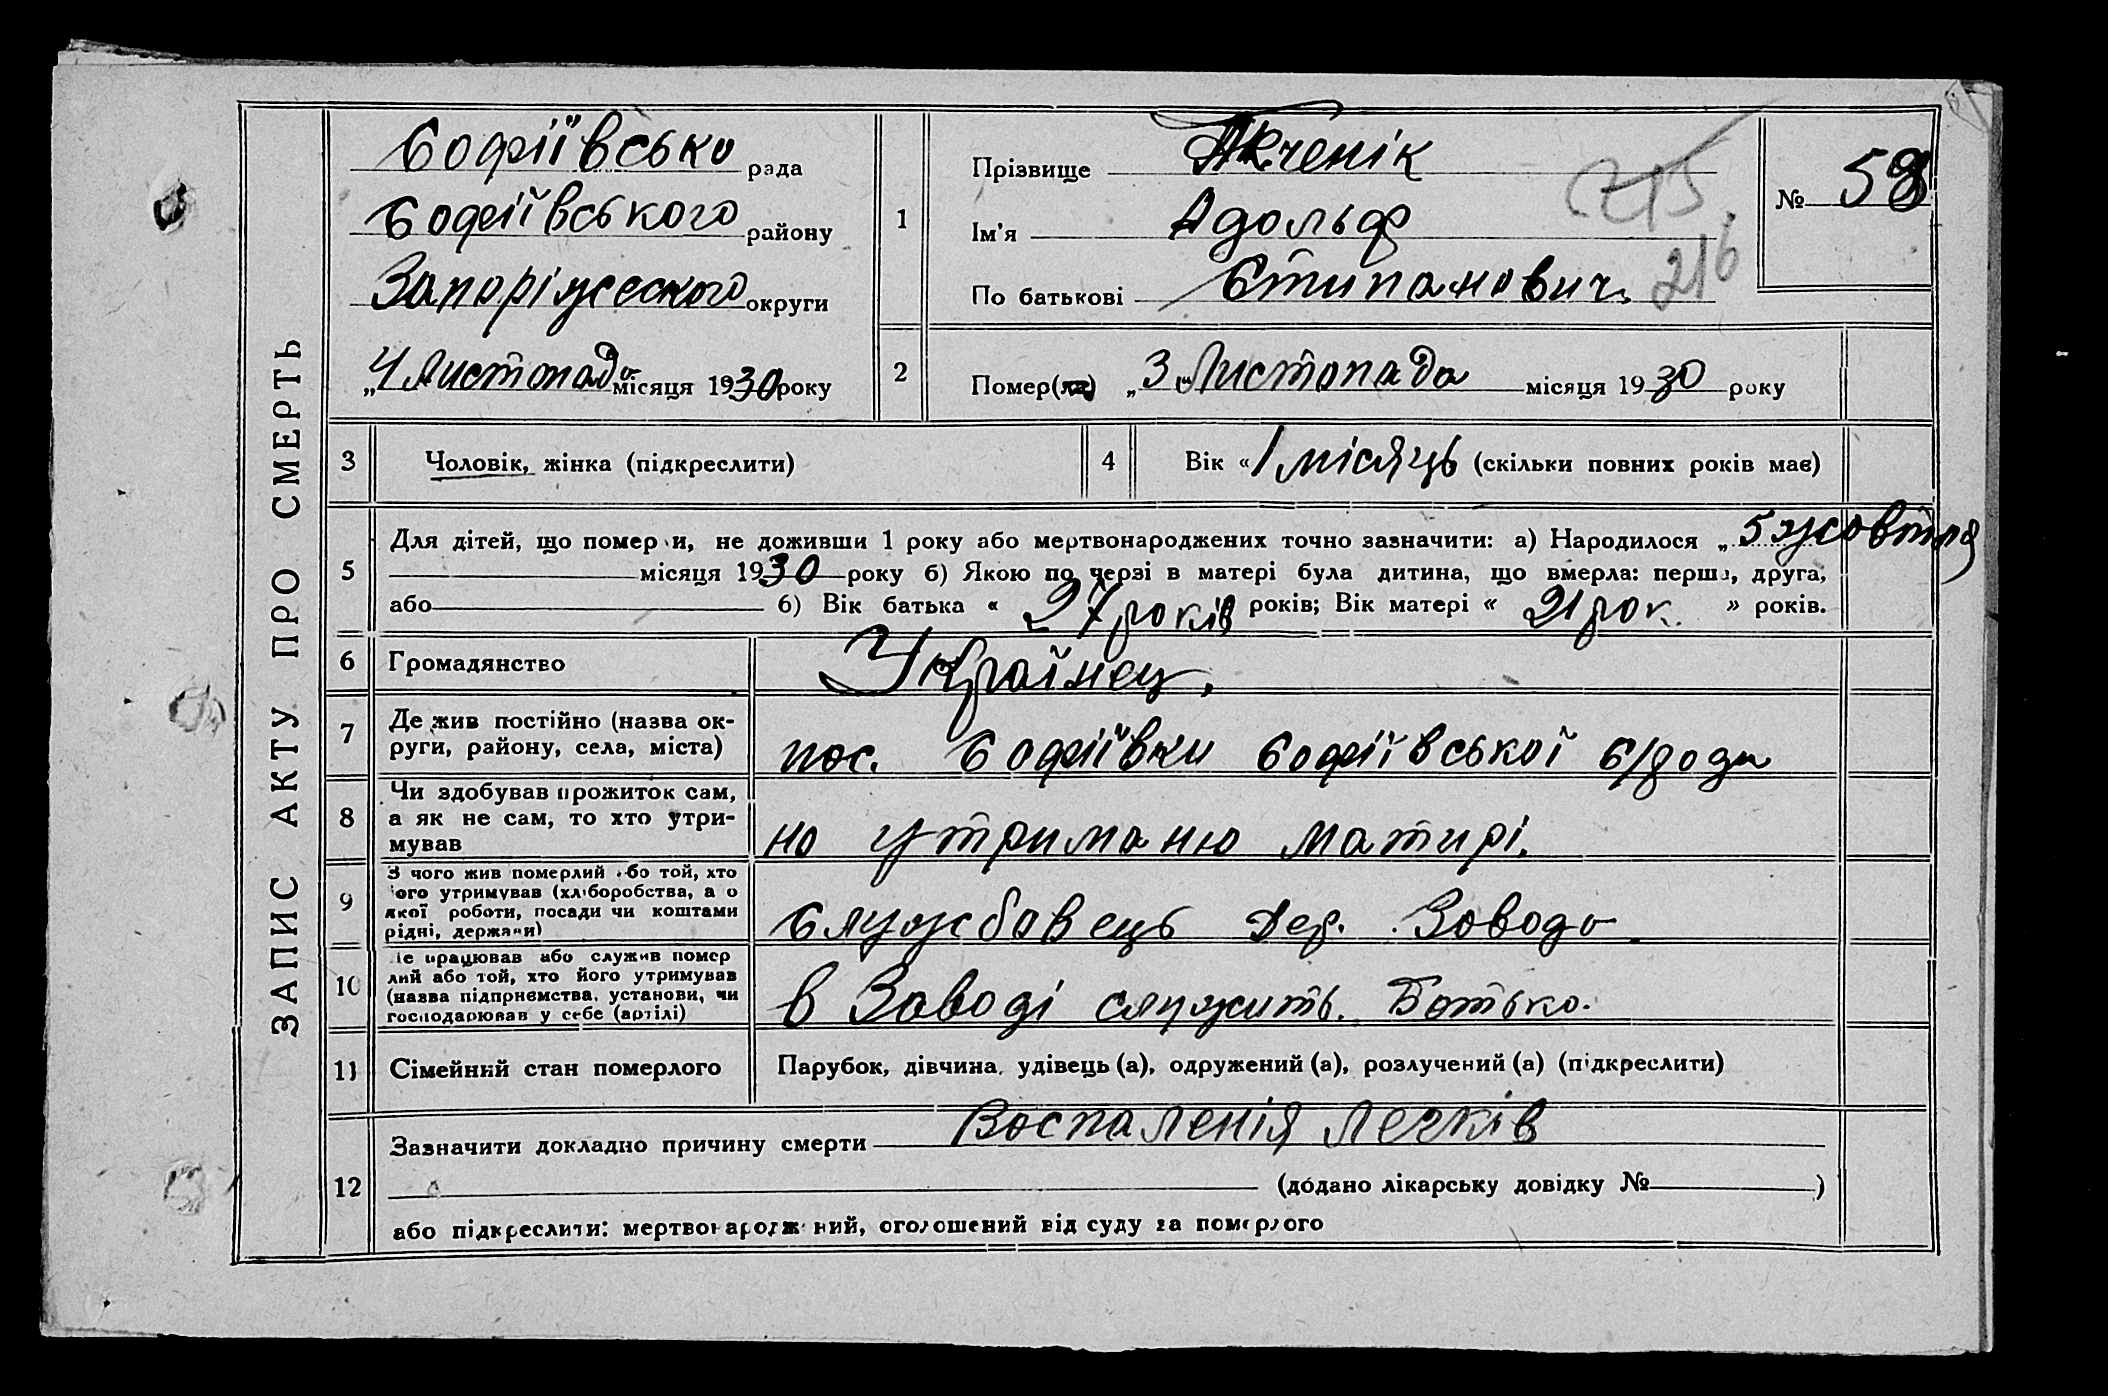 ЗАПИС АКТУ ПРО СМЕРТЬ
Софіївсько рада
Софіївського району
Запоріжеского округи
„4 Листопада місяця 1930 року
1
Прізвище
Ім'я Адольф
По батькові Стипанович
215
216
№ 58
2
Помер(ла) „3 „Листопада місяця 1930 року
3
Чоловік, жінка (підкреслити)
4
Вік « 1 місяць (скільки повних років має)
5
Для дітей, що померли, не доживши 1 року або мертвонароджених точно зазначити: а) Народилося „ 5 жовтня
місяця 1930 року б) Якою по черзі в матері була дитина, що вмерла: перша, друга,
або б) Вік батька « 27 років років; Вік матері « 21 рок » років.
6
Громадянство
Українец,
7
Де жив постійно (назва ок-
руги, району, села, міста)
пос. Софіївки Софіївської
8
Чи здобував прожиток сам,
а як не сам, то хто утри-
мував
на утриманю матирі.
9
З чого жив померлий або той, хто
його утримував (хліборобства, а о
якої роботи, посади чи коштами
рідні, держави)
Службовець Заводо
10
Де працював або служив помер
лий або той, хто його утримував
(назва підприємства, установи, чи
господарював у себе (артілі)
в Заводі служить. Батько.
11
Сімейний стан померлого
Парубок, дівчина, удівець (а), одружений (а), розлучений (а) (підкреслити)
12
Зазначити докладно причину смерти Воспаленія Легків
(додано лікарську довідку № )
або підкреслити: мертвонароджений, оголошений від суду за померлого